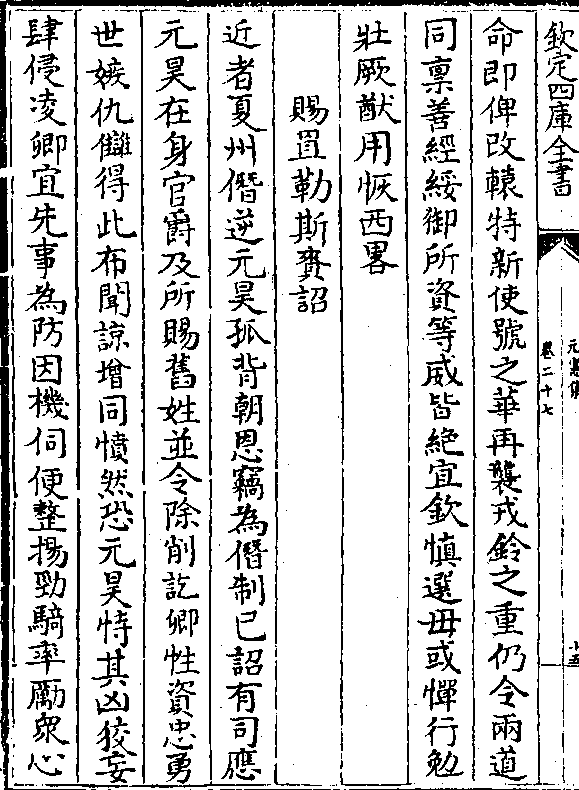 欽定四庫全書
元憲集
卷二十七
十五
命即俾改轅特新使號之華再襲戎鈐之重仍令兩道
同稟善經綏御所資等威皆絶宜欽慎選毋或憚行勉
壯厥猷用恢西畧
賜罝勒斯賚詔
近者夏州僭逆元昊孤背朝恩竊為僭制已詔有司應
元昊在身官爵及所賜舊姓並令除削訖卿性資忠勇
世嫉仇讎得此布聞諒增同憤然恐元昊恃其凶狡妄
肆侵凌卿宜先事為防因機伺便整揚勁騎率勵衆心